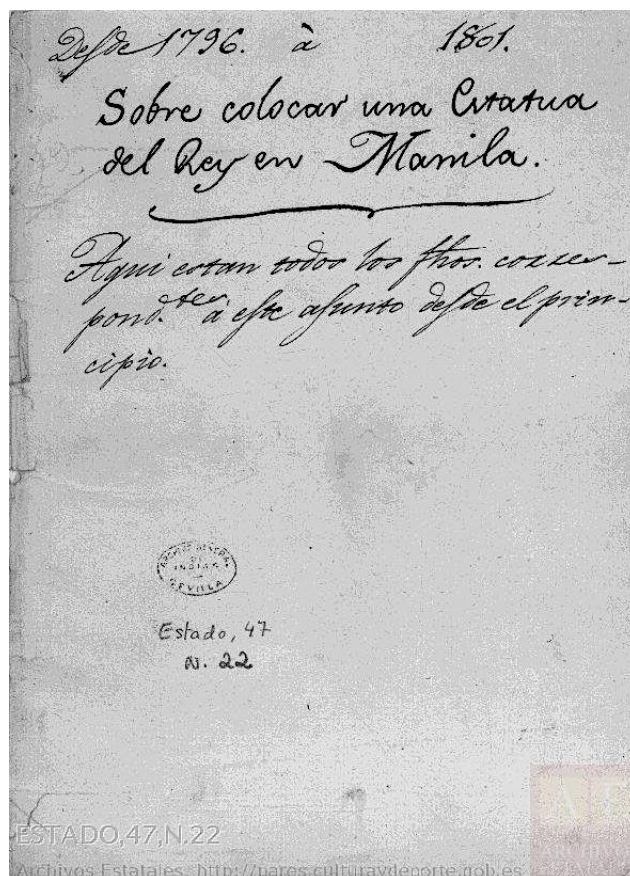 Desde 1796. à 1801.
Sobre colocar una Estatua
del Rey en Manila.
Aqui estan todos los fhos. corres-
pond.tes à este asunto desde el prin-
cipio.
ARCHIVO GENERAL
DE
INDIAS
SEVILLA
Estado, 47
N. 22
ESTADO,47,N.22
Archivos Estatales, http://pares.culturaydeporte.gob.es